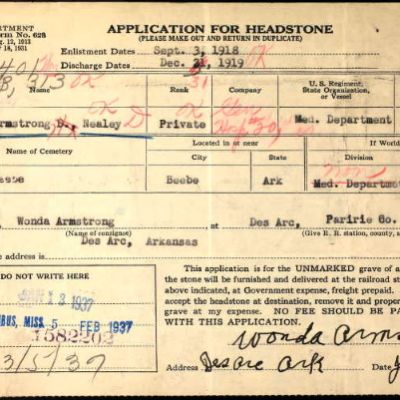 APPLICATION FOR HEADSTONE
(PLEASE MAKE OUT AND RETURN IN DUPLICATE)
No. 623
12, 1913
18, 1931
Enlistment Dates Sept. 3, 1918 OK
Discharge Dates Dec. 1919
31
OK
Rank
U. S. Regiment,
State Organization,
or Vessel
Armstrong D. Nealey
Private
Med. Department
Name of Cemetery
Located in or near
If World
City
State
Div
Beebe
Ark
Med. Department
Wonda Armstrong
at
Des Arc,
Paririe Co.
(Name of consignee)
(Give R. R. station, county,
Des Arc, Arkansas
address is
DO NOT WRITE HERE
13 1937
BUS, MISS. 5 FEB 1937
1582202
3/5/37
This application is for the UNMARKED grave of a
the stone will be furnished and delivered at the railroad st
above indicated, at Government expense, freight prepaid.
accept the headstone at destination, remove it and proper
grave at my expense. NO FEE SHOULD BE PA
WITH THIS APPLICATION.
Wonda Arms
Address
Des Arc Ark
Date